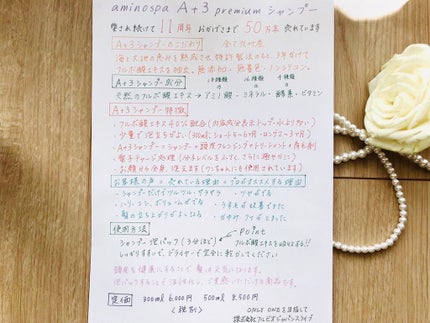 aminospa A+3 premium シャンプー
愛され続けて11周年 おかげさまで50万本売れています
A+3シャンプーのこだわり 全て天然産
海と大地の恵みを熟成させ、特許製法のもと、3年かけて
フルボ酸エキスを抽出。無添加・無着色・ノンシリコン。
A+3シャンプー成分 18種類の 16種類 9種類
天然のフルボ酸エキス → アミノ酸・ミネラル・酵素・ビタミン
A+3シャンプー特徴
・フルボ酸エキス40%配合(内容成分表示トップが水ではない)
・少量で泡立ちがよい(300ml:ショート5〜6ヶ月・ロング2〜3ヶ月)
・A+3シャンプー=シャンプー+頭皮クレンジング+トリートメント+育毛剤
・電子チャージ処理(分子レベルを上げて、さらに艶やかに)
・お顔から全身、洗えます(ワンちゃんにも使用されています)
お客様の声・売れている理由・プロがオススメする理由
・シャンプーだけでツルツル、サラサラ ・ツヤがでる
・ハリ、コシ、ボリュームがでる ・うす毛が改善できた
・髪の立ち上がりがよくなる ・かゆみ、フケがとまった
使用方法 Point
シャンプー泡パック(3分ほど)
しっかりすすいで、ドライヤーで完全に乾かしてください
頭皮を健康にすることで髪は元気になります。
定価 300ml 6,000円 500ml 8,500円
(税別)
ONLY ONEを目指して
株式会社フルビオジャパンスライブ